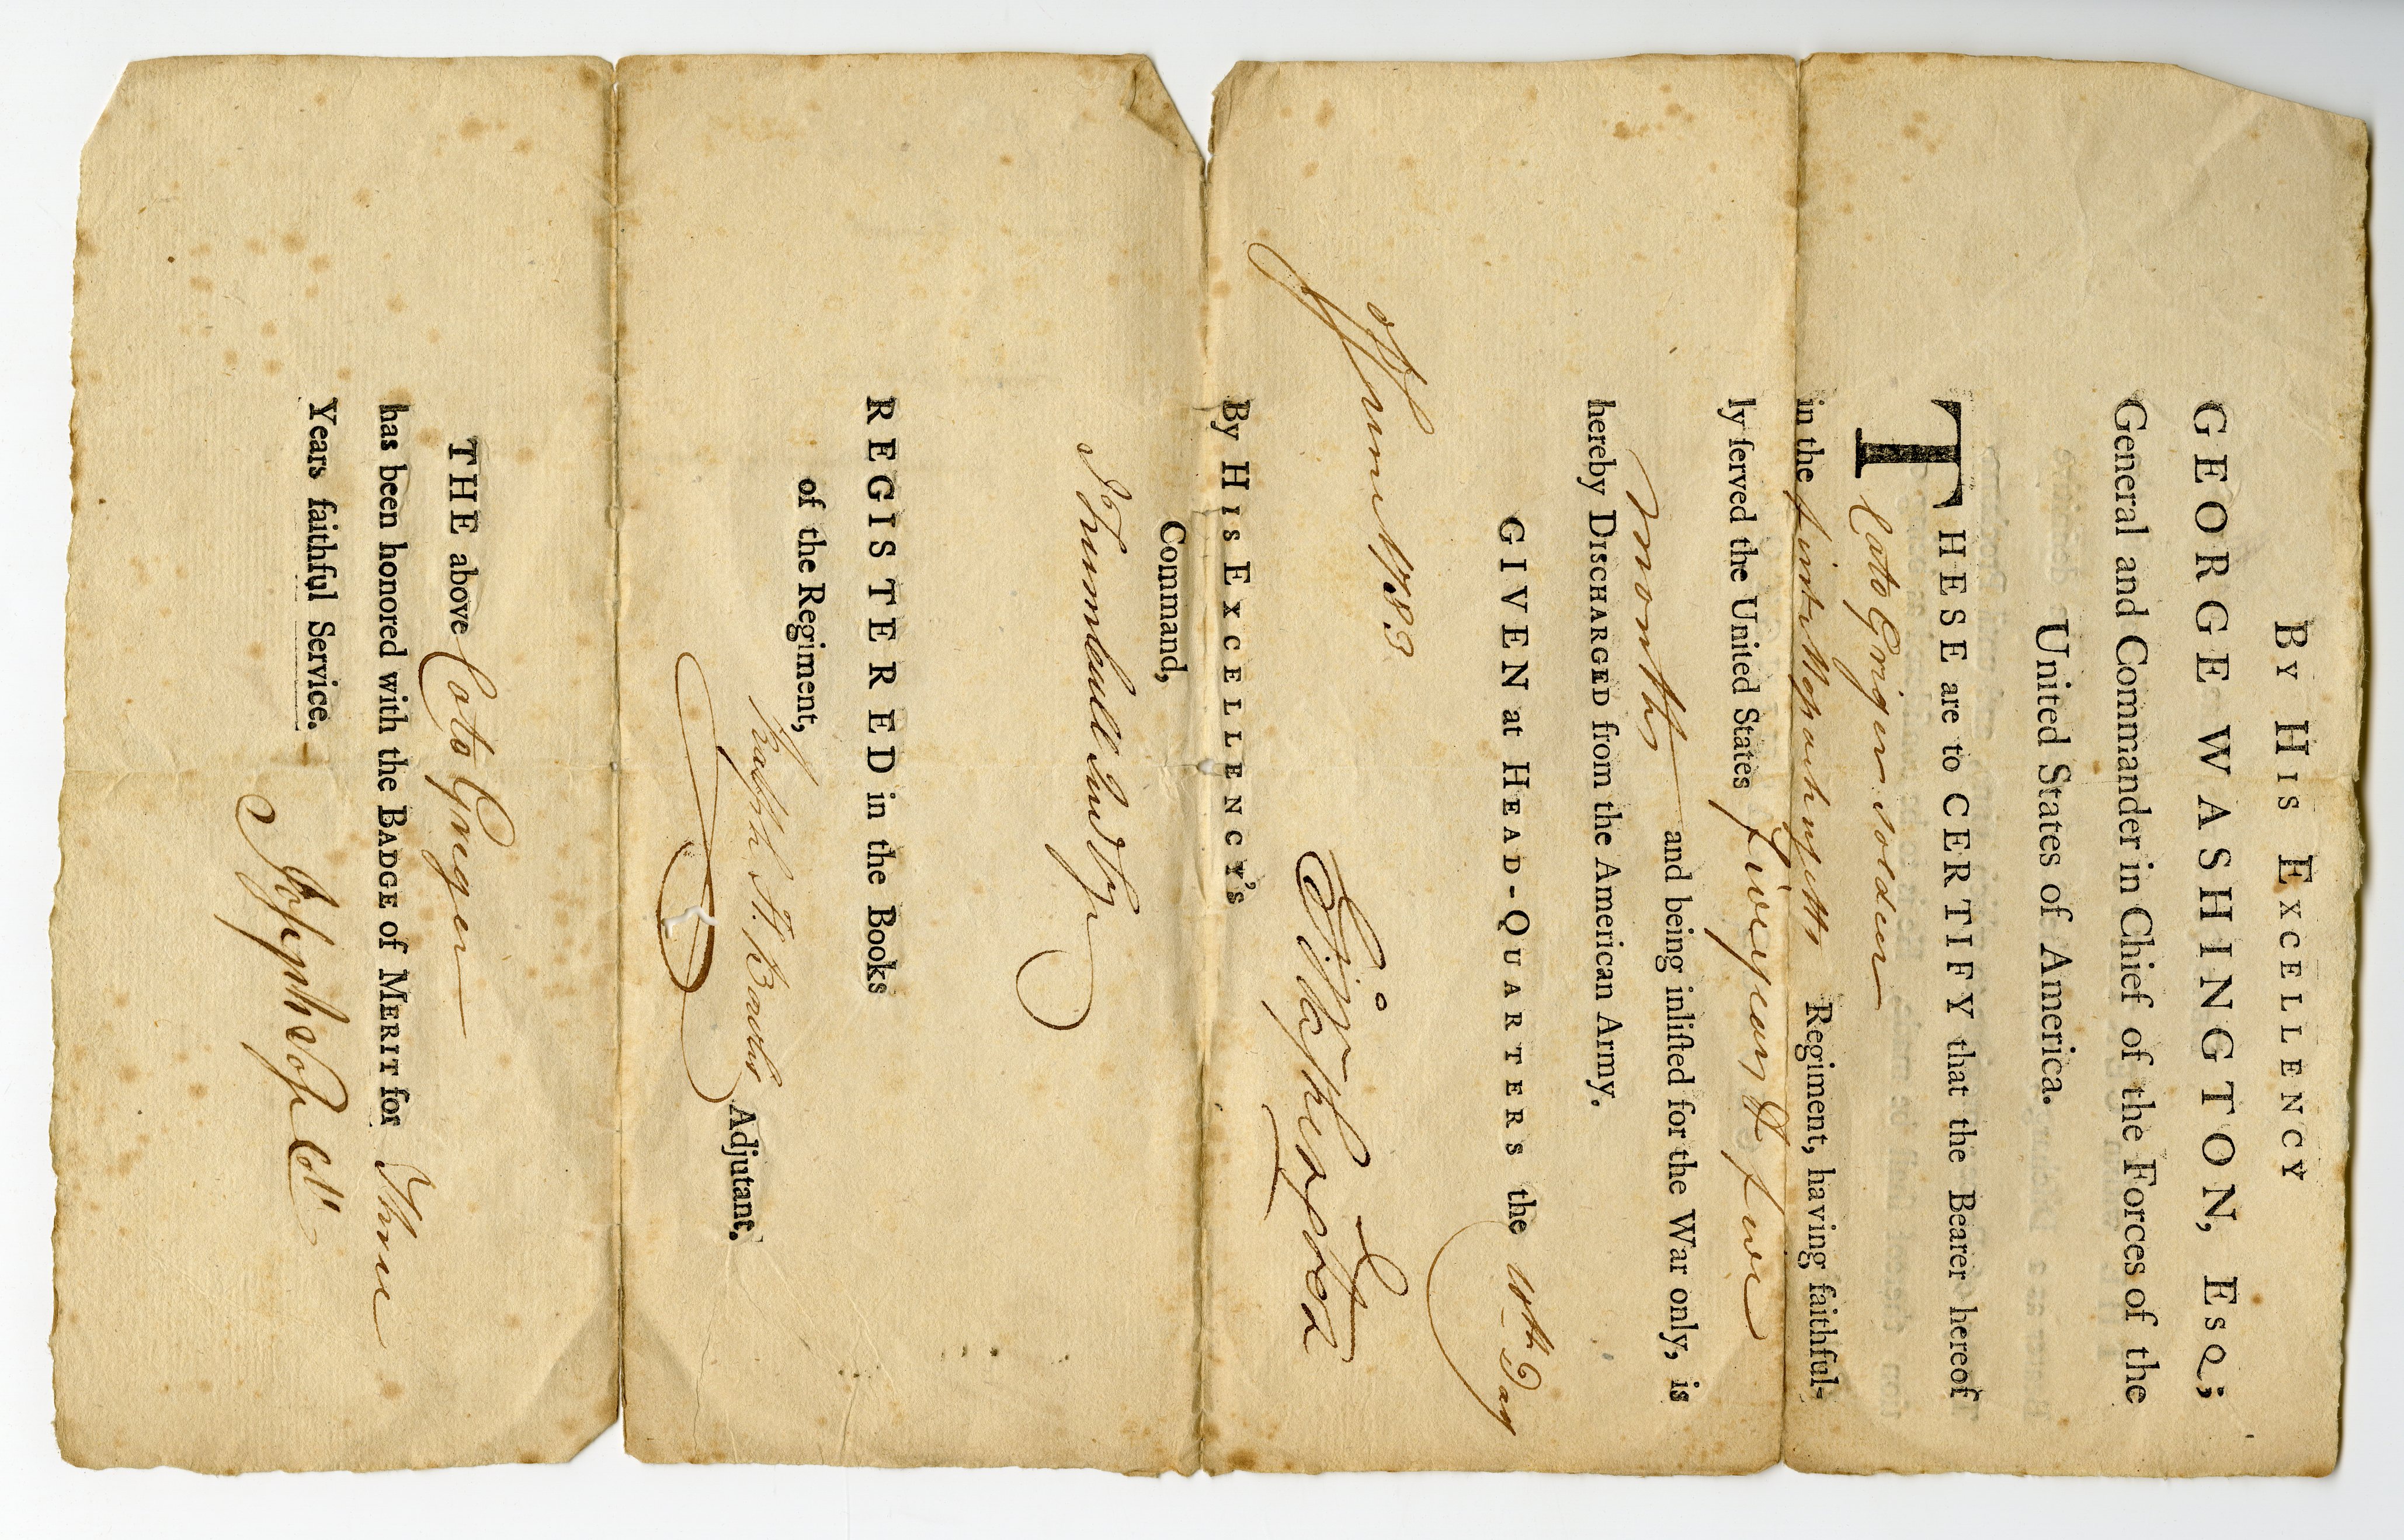 By His Excellency
GEORGE WASHINGTON, Esq;
General and Commander in Chief of the Forces of the
United States of America.
THESE are to CERTIFY that the Bearer hereof
Cato Griger soldier
in the first Massachusetts Regiment, having faithful-
ly ſerved the United States five years & five
months and being inliſted for the War only, is
hereby Discharged from the American Army.
GIVEN at Head-Quarters the 10th Day
of June 1783
G:Washington
By His Excellency's
Command,
J Trumbull Jun Sy
REGISTERED in the Books
of the Regiment,
Ralph H. Bowles Adjutant.
THE above Cato Greger
has been honored with the Badge of Merit for Three
Years faithful Service.
Joseph Vose Coll